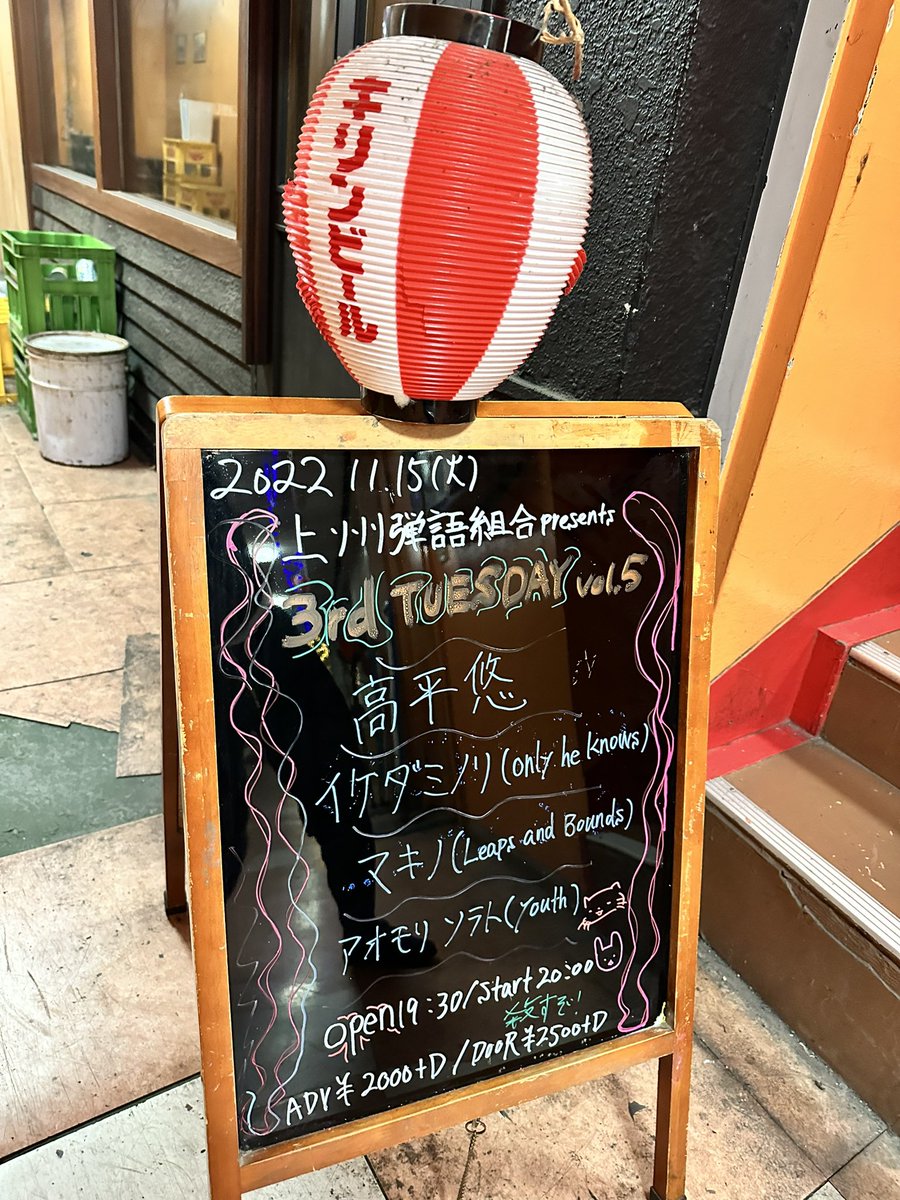 キリンビール
2022 11.15(火)
上州弾語組合presents
3rd TUESDAY vol.5
高平悠
イケダミノリ(only he knows)
マキノ(Leaps and Bounds)
アオモリ ソラト(Youth)
open19:30/Start20:00
殺すぞ!
ADV¥2000+D/DOOR¥2500+D